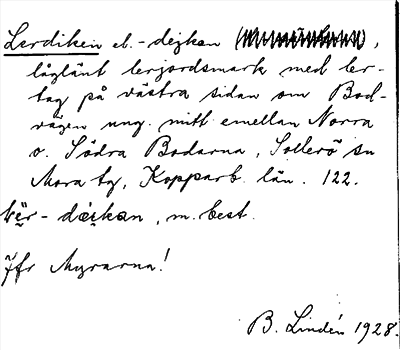 Lerdiken el. -dejkan
låglänt lerjordsmark med ler-
tag på västra sidan om Bod-
vägen ung. mitt emellan Norra
o. Södra Bodarna, Sollerö sn
Mora tg, Kopparb. län. 122.
m. best.
Jfr Myrarna!
B. Lindén 1928.